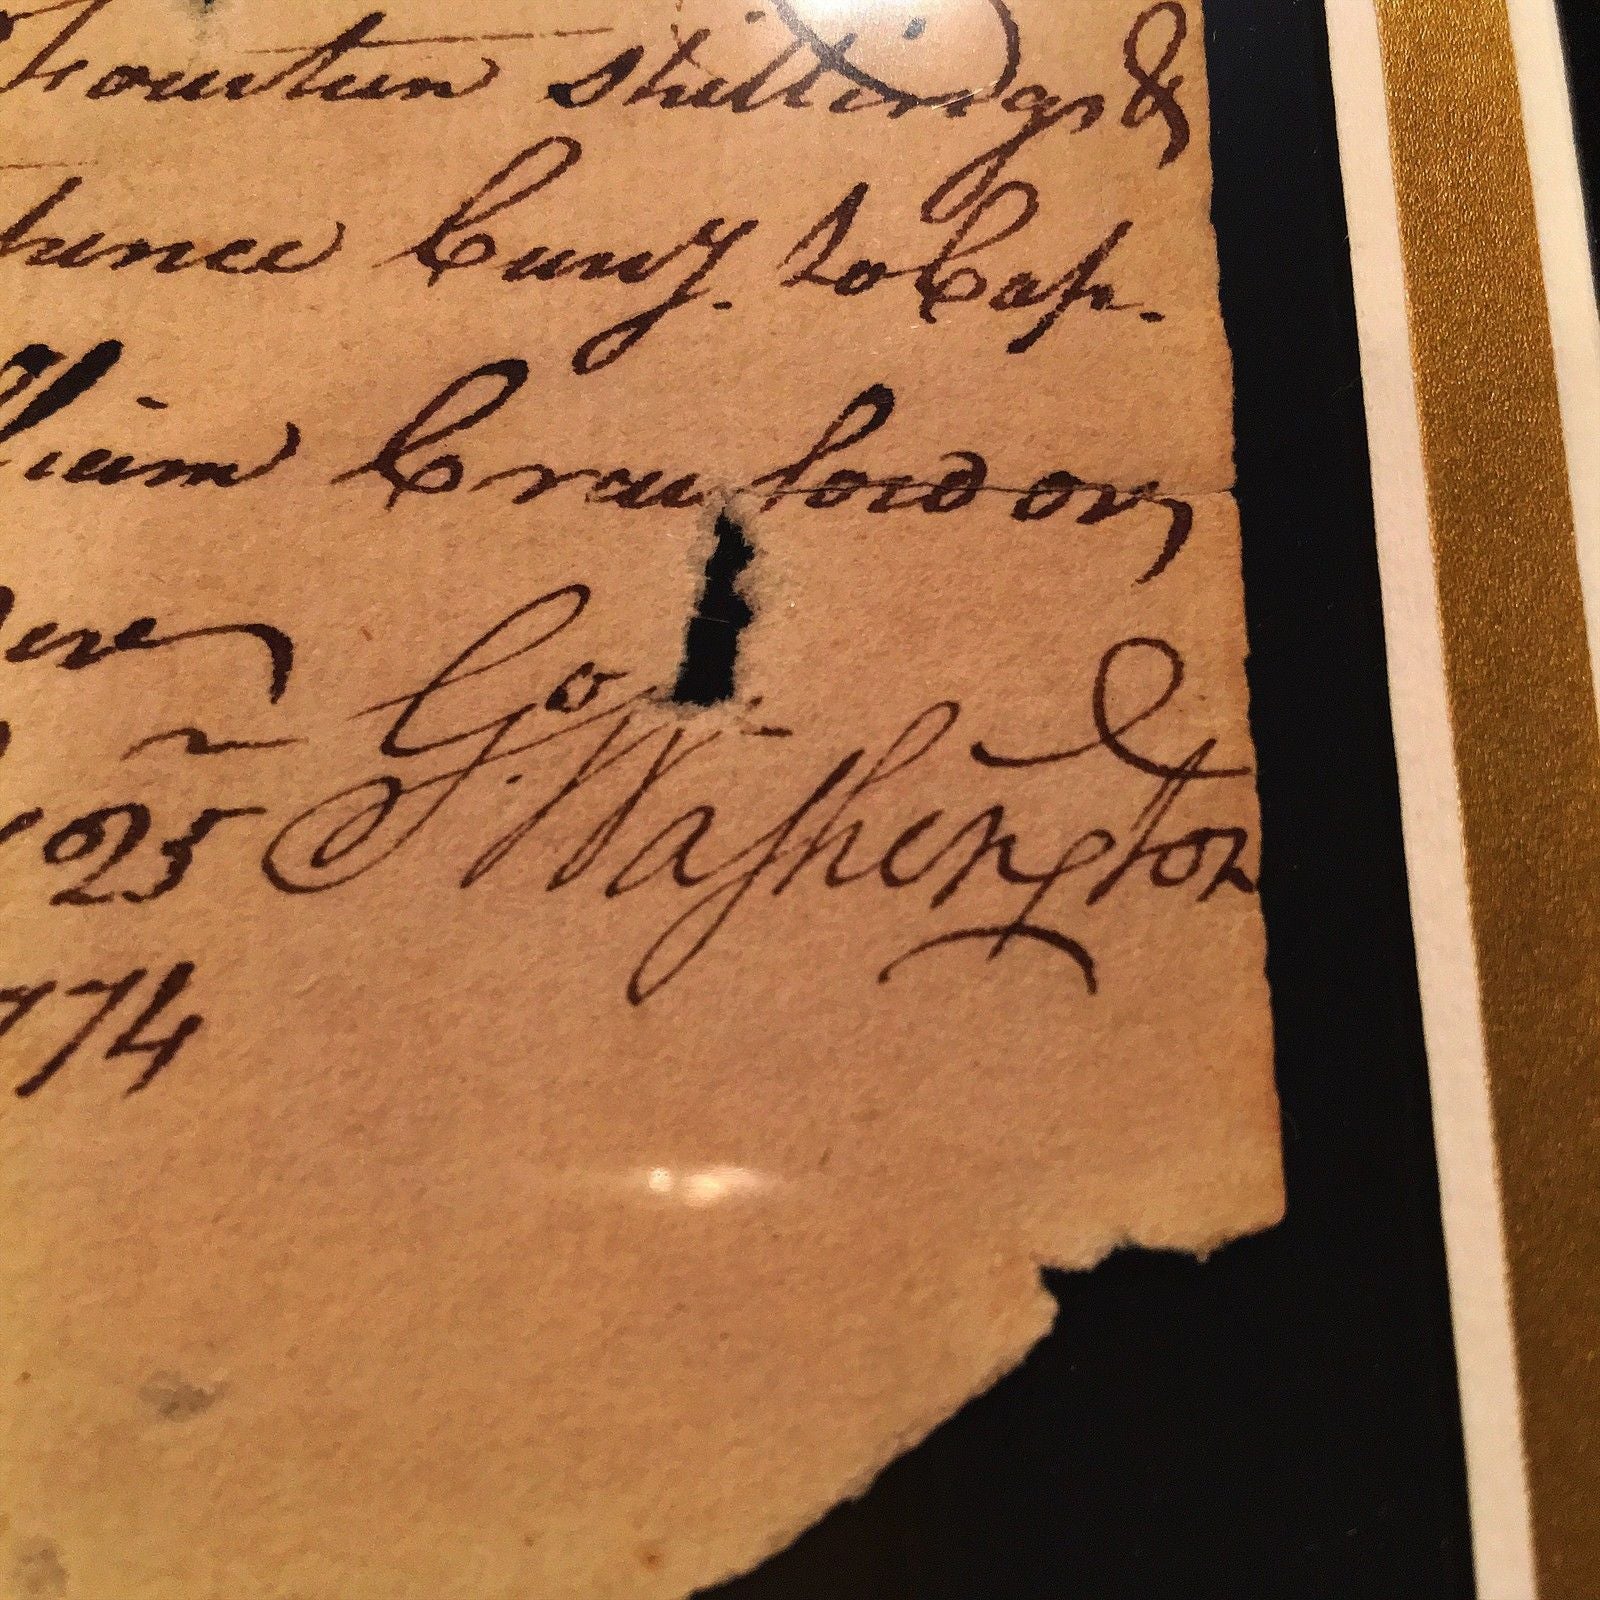 Fourteen shillings &
pence Curry. to Cap.
lliam Crawford on
ere
25 Go. Washington
774